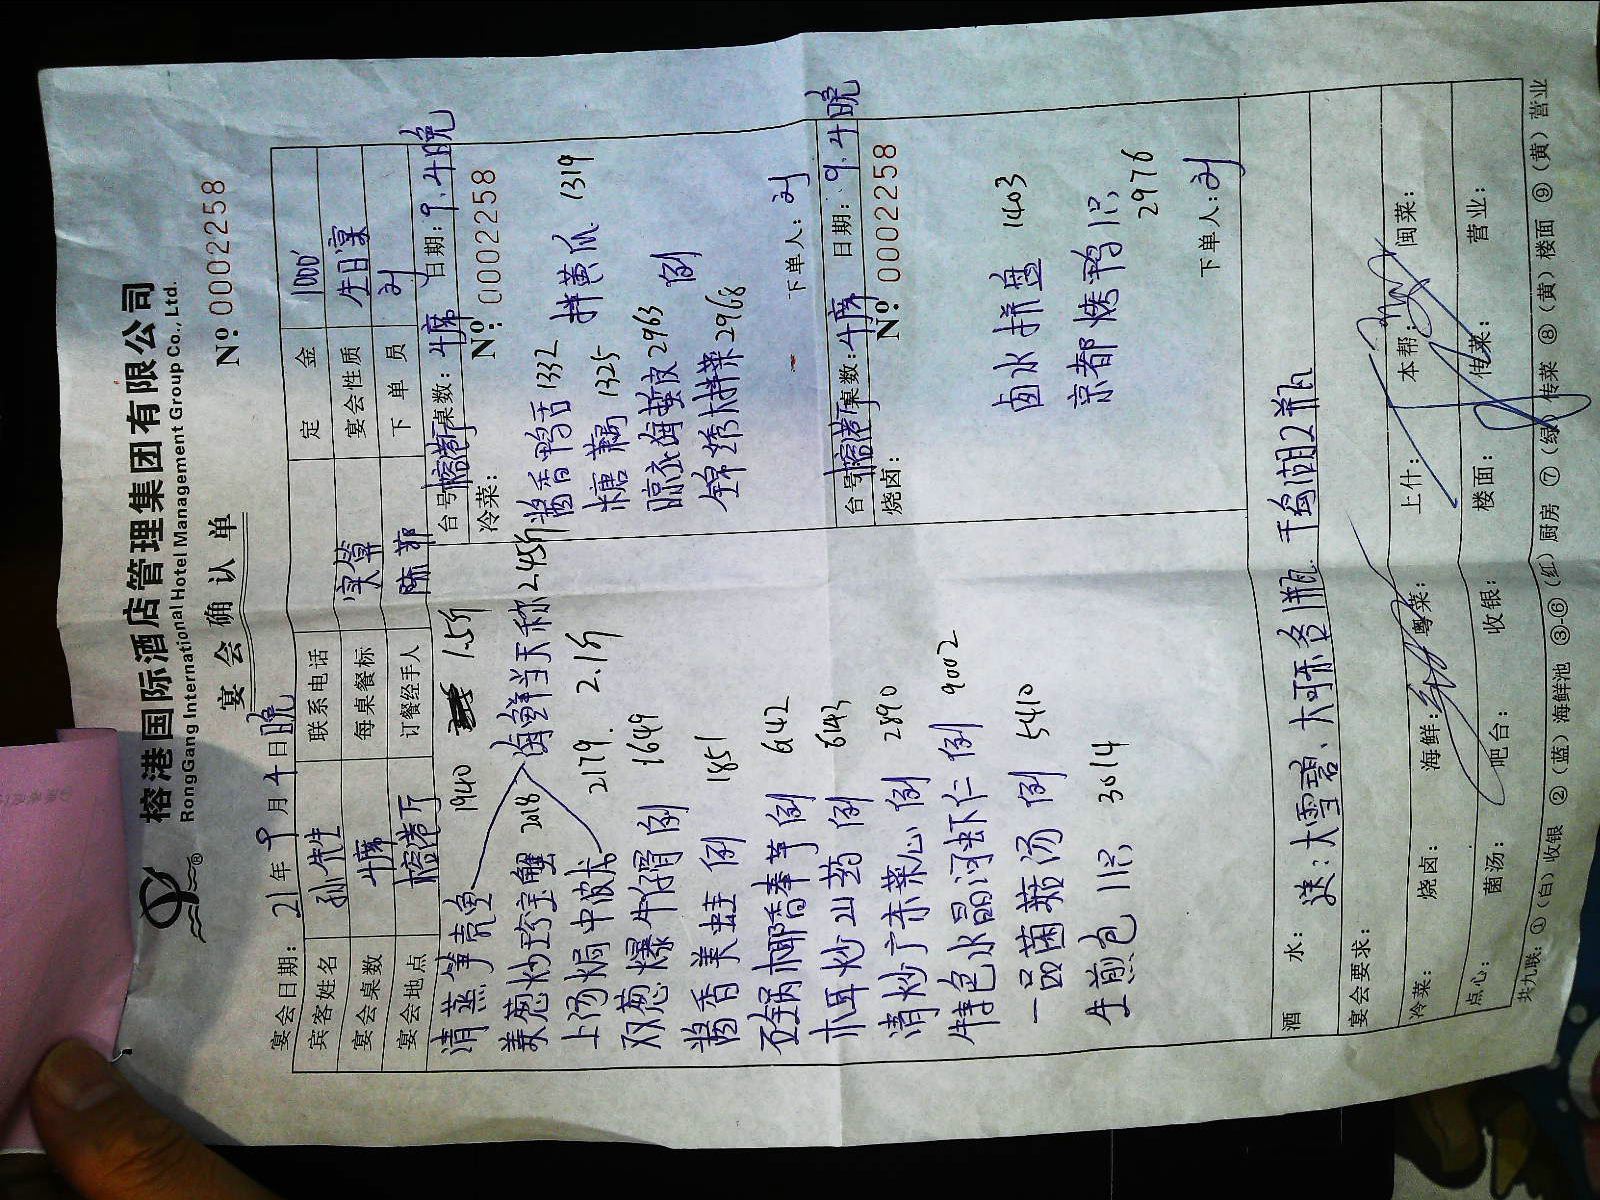 榕港国际酒店管理集团有限公司
RongGang International Hotel Management Group Co., Ltd.
宴会确认单
№ 0002258
宴会日期: 21年9月4日晚
宾客姓名 孙先生 联系电话 定金 1000
宴会桌数 4席 每桌餐标 实算 宴会性质 生日宴
宴会地点 榕港厅 订餐经手人 陈菲 下单员 刘
清蒸笋壳鱼 1940 1.5斤
姜葱炒珍宝蟹 2018 海鲜当天称 2.45斤
上汤焗中波龙 2179 2.1斤
双葱爆牛仔骨 例 1649
酱香美蛙 例 1851
石锅椰香奉芋 例 6142
木耳炒山药 例 6143
清炒广东菜心 例 2890
特色水晶河虾仁 例 9002
一品菌菇汤 例 5410
生煎包 11只 3014
台号: 榕港厅 桌数: 4席 日期: 9.4晚
冷菜: № 0002258
酱香鸭舌 1332 拌黄瓜 1319
糖藕 1325
晾衣海蜇皮 2963 例
锦绣拌菜 2968
下单人: 刘
台号: 榕港厅 桌数: 4席 日期: 9.4晚
烧卤: № 0002258
卤水拼盘 1403
京都烤鸭 1只
2976
下单人: 刘
酒水: 送: 大雪碧、大可乐各1瓶 千岛湖2瓶
宴会要求:
冷菜: 烧卤: 海鲜: 粤菜: 上什: 本帮: 闽菜:
点心: 菌汤: 吧台: 收银: 楼面: 传菜: 营业:
共九联: ①(白)收银 ②(蓝)海鲜池 ③-⑥(红)厨房 ⑦(绿)传菜 ⑧(黄)楼面 ⑨(黄)营业